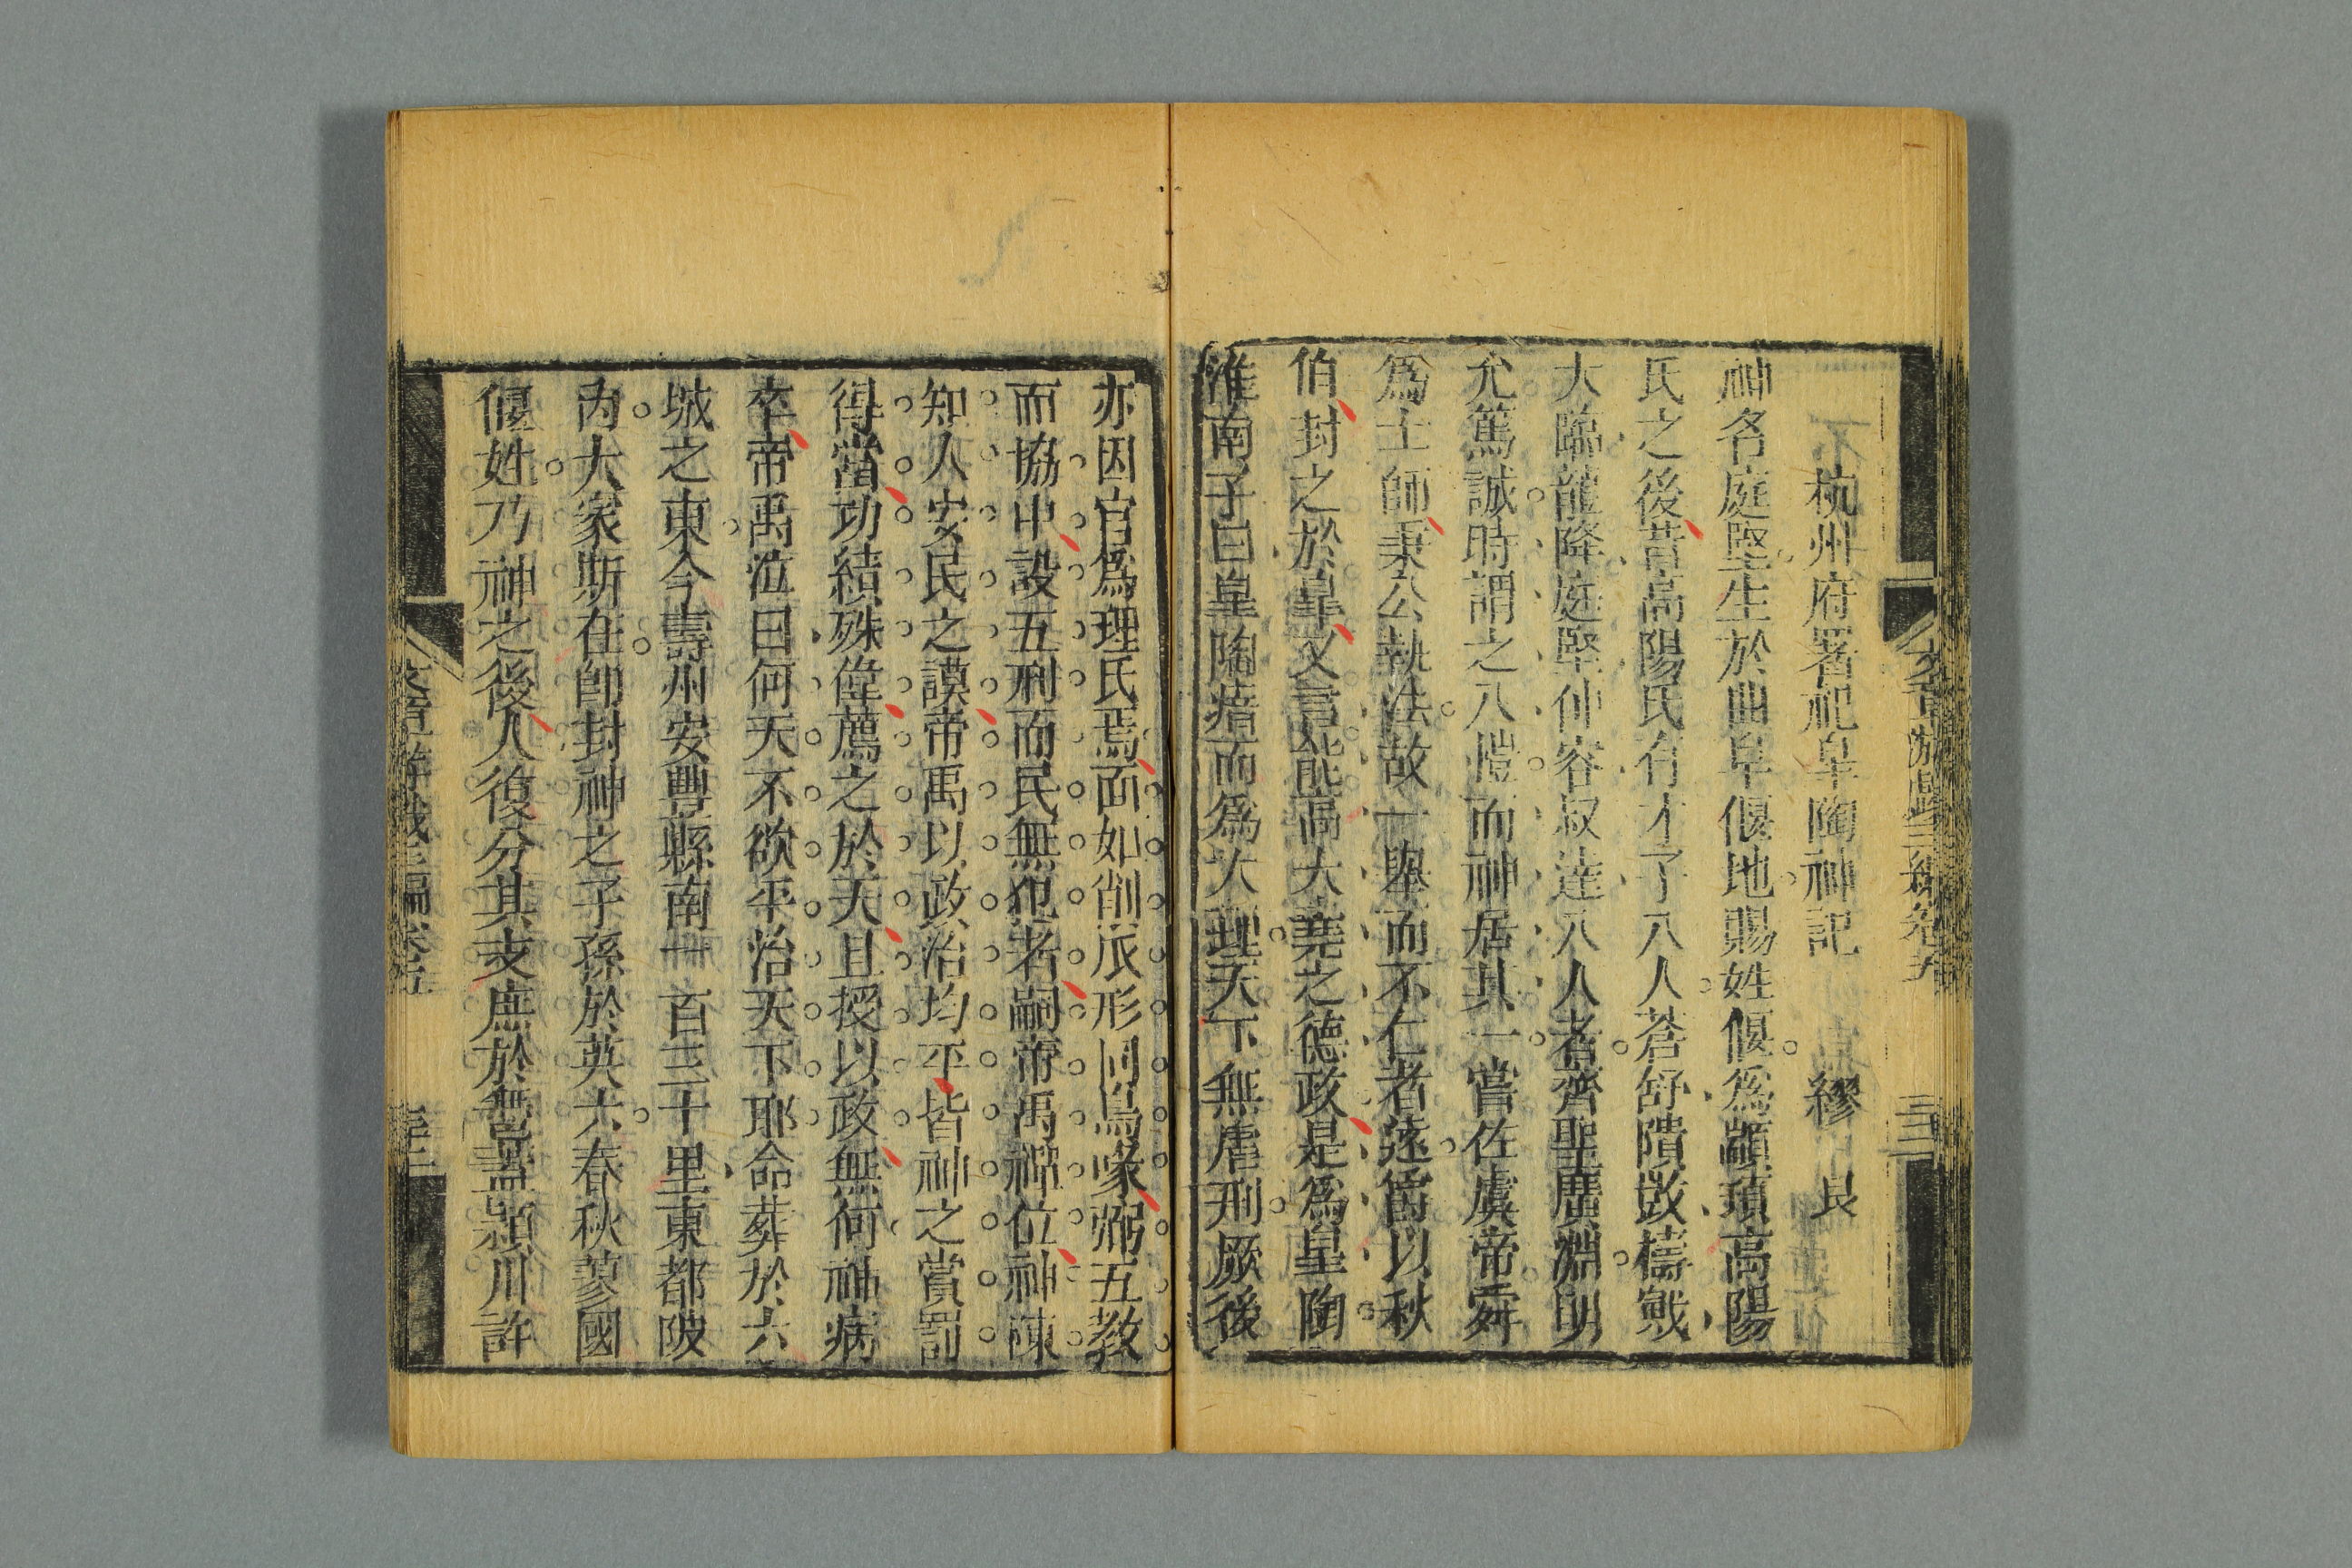 杭州府署祀皐陶神記 繆艮
神名庭堅生於曲阜偃地賜姓偃爲顓頊高陽
氏之後昔高陽氏有才子八人蒼舒隤敳檮戭
大臨龍降庭堅仲容叔達八人者齊聖廣淵明
允篤誠時謂之八愷而神居其一嘗佐虞帝舜
爲士師秉公執法故一舉而不仁者遠爵以秋
伯封之於皐文言能謌大堯之德政是爲皇陶
淮南子曰皇陶瘖而爲大理天下無虐刑厥後
亦因官爲理氏焉面如削瓜形同鳥喙弼五教
而協中設五刑而民無犯者嗣帝禹禪位神陳
知人安民之謨帝禹以政治均平皆神之賞罰
得當功績殊偉薦之於天且授以政無何神病
卒帝禹泣曰何天不欲平治天下耶命葬於六
城之東今壽州安豐縣南一百三十里東都陂
內大冢斯在卽封神之子孫於英六春秋蓼國
偃姓乃神之後人復分其支庶於無邑蓋潁川許
三編卷五